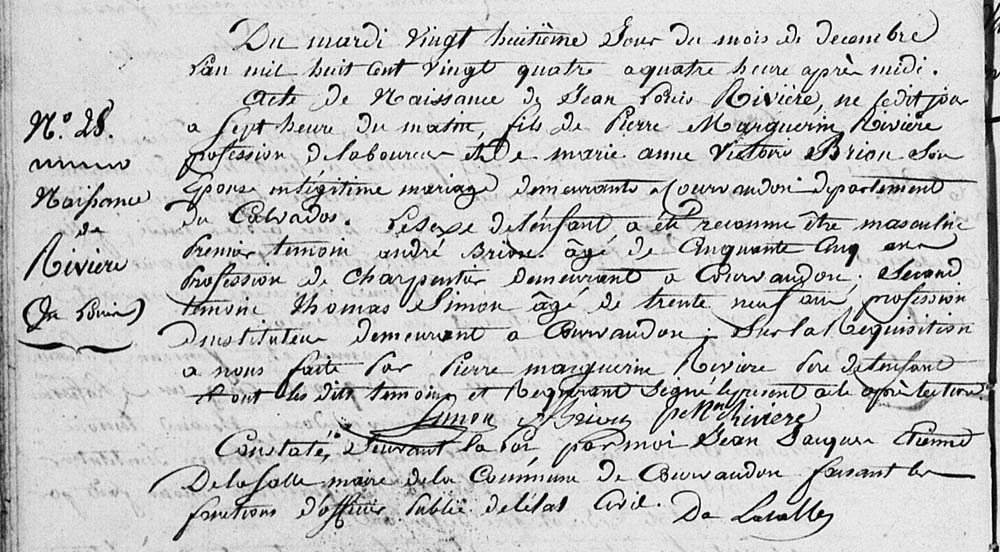 Du mardi vingt huitième Jour du mois de decembre
L'an mil huit cent vingt quatre a quatre heure après midi.
Acte de Naissance de Jean Louis Rivière, né ledit jour
a sept heure du matin, fils de Pierre Marguerin Rivière
profession de laboureur et de marie anne Victoire Brion Son
Epouse en légitime mariage demeurants a Courvaudon departement
du Calvados. Le Sexe de l'enfant a été reconnu être masculin
Premier temoin andré Brion âgé de Cinquante Cinq ans
Profession de charpentier demeurant a Courvaudon, Second
temoin Thomas Simon âgé de trente neuf ans profession
d'instituteur demeurant a Courvaudon; Sur la Requisition
a nous faite Par Pierre marguerin Riviere Pere de l'enfant
et ont les dits temoins et Requerant Signé le present acte après lecture
Simon ABrion P Mrin Riviere
Constaté, Suivant la Loi par moi Jean Jacques Etienne
De la Salle maire de la Commune de Courvaudon faisant les
fonctions d'officier Public de l'état Civil. De Lasalle
No 28.
Naissance
de
Riviere
(Jn Louis)